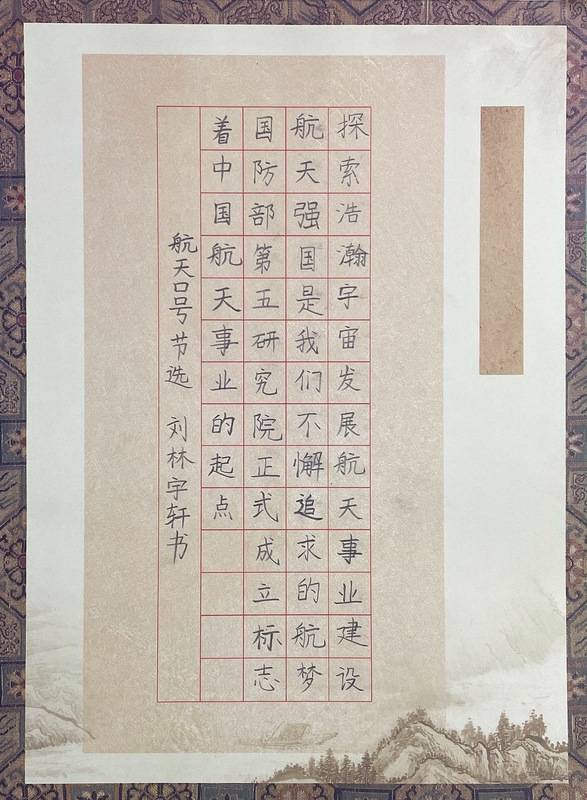 探索浩瀚宇宙发展航天事业建设
航天强国是我们不懈追求的航梦
国防部第五研究院正式成立标志
着中国航天事业的起点
航天口号节选 刘林宇轩书